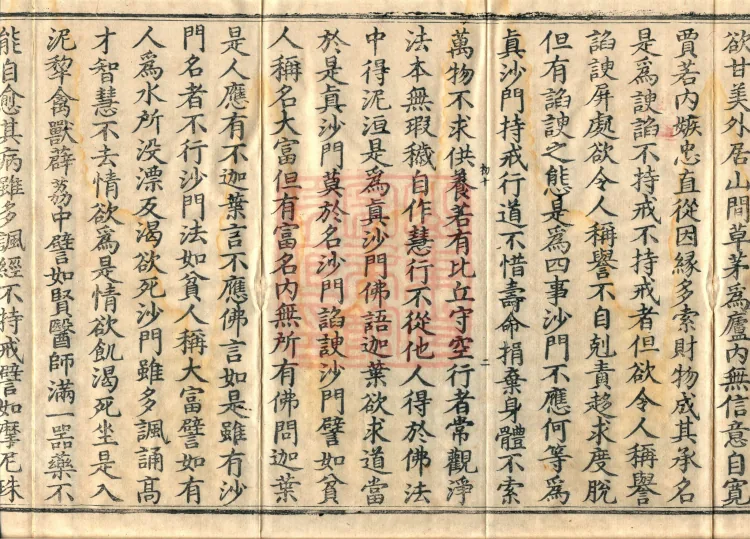 欲甘美外居山間草茅爲廬內無信意自寬
賈若內嫉忠直從因緣多索財物成其承名
是爲諛諂不持戒不持戒者但欲令人稱譽
諂諛屏處欲令人稱譽不自剋責趍求度脫
但有諂諛之態是爲四事沙門不應何等爲
眞沙門持戒行道不惜壽命捐棄身體不索
萬物不求供養若有比丘守空行者常觀淨
法本無瑕穢自作慧行不從他人得於佛法
中得泥洹是爲眞沙門佛語迦葉欲求道當
於是眞沙門莫於名沙門諂諛沙門譬如貧
人稱名大富但有富名內無所有佛問迦葉
是人應有不迦葉言不應佛言如是雖有沙
門名者不行沙門法如貧人稱大富譬如有
人爲水所没漂反渴欲死沙門雖多諷誦高
才智慧不去情欲爲是情欲飢渴死坐是入
泥犂禽獸薜荔中譬如賢醫師滿一器藥不
能自愈其病雖多諷經不持戒譬如摩尼珠
初十
二